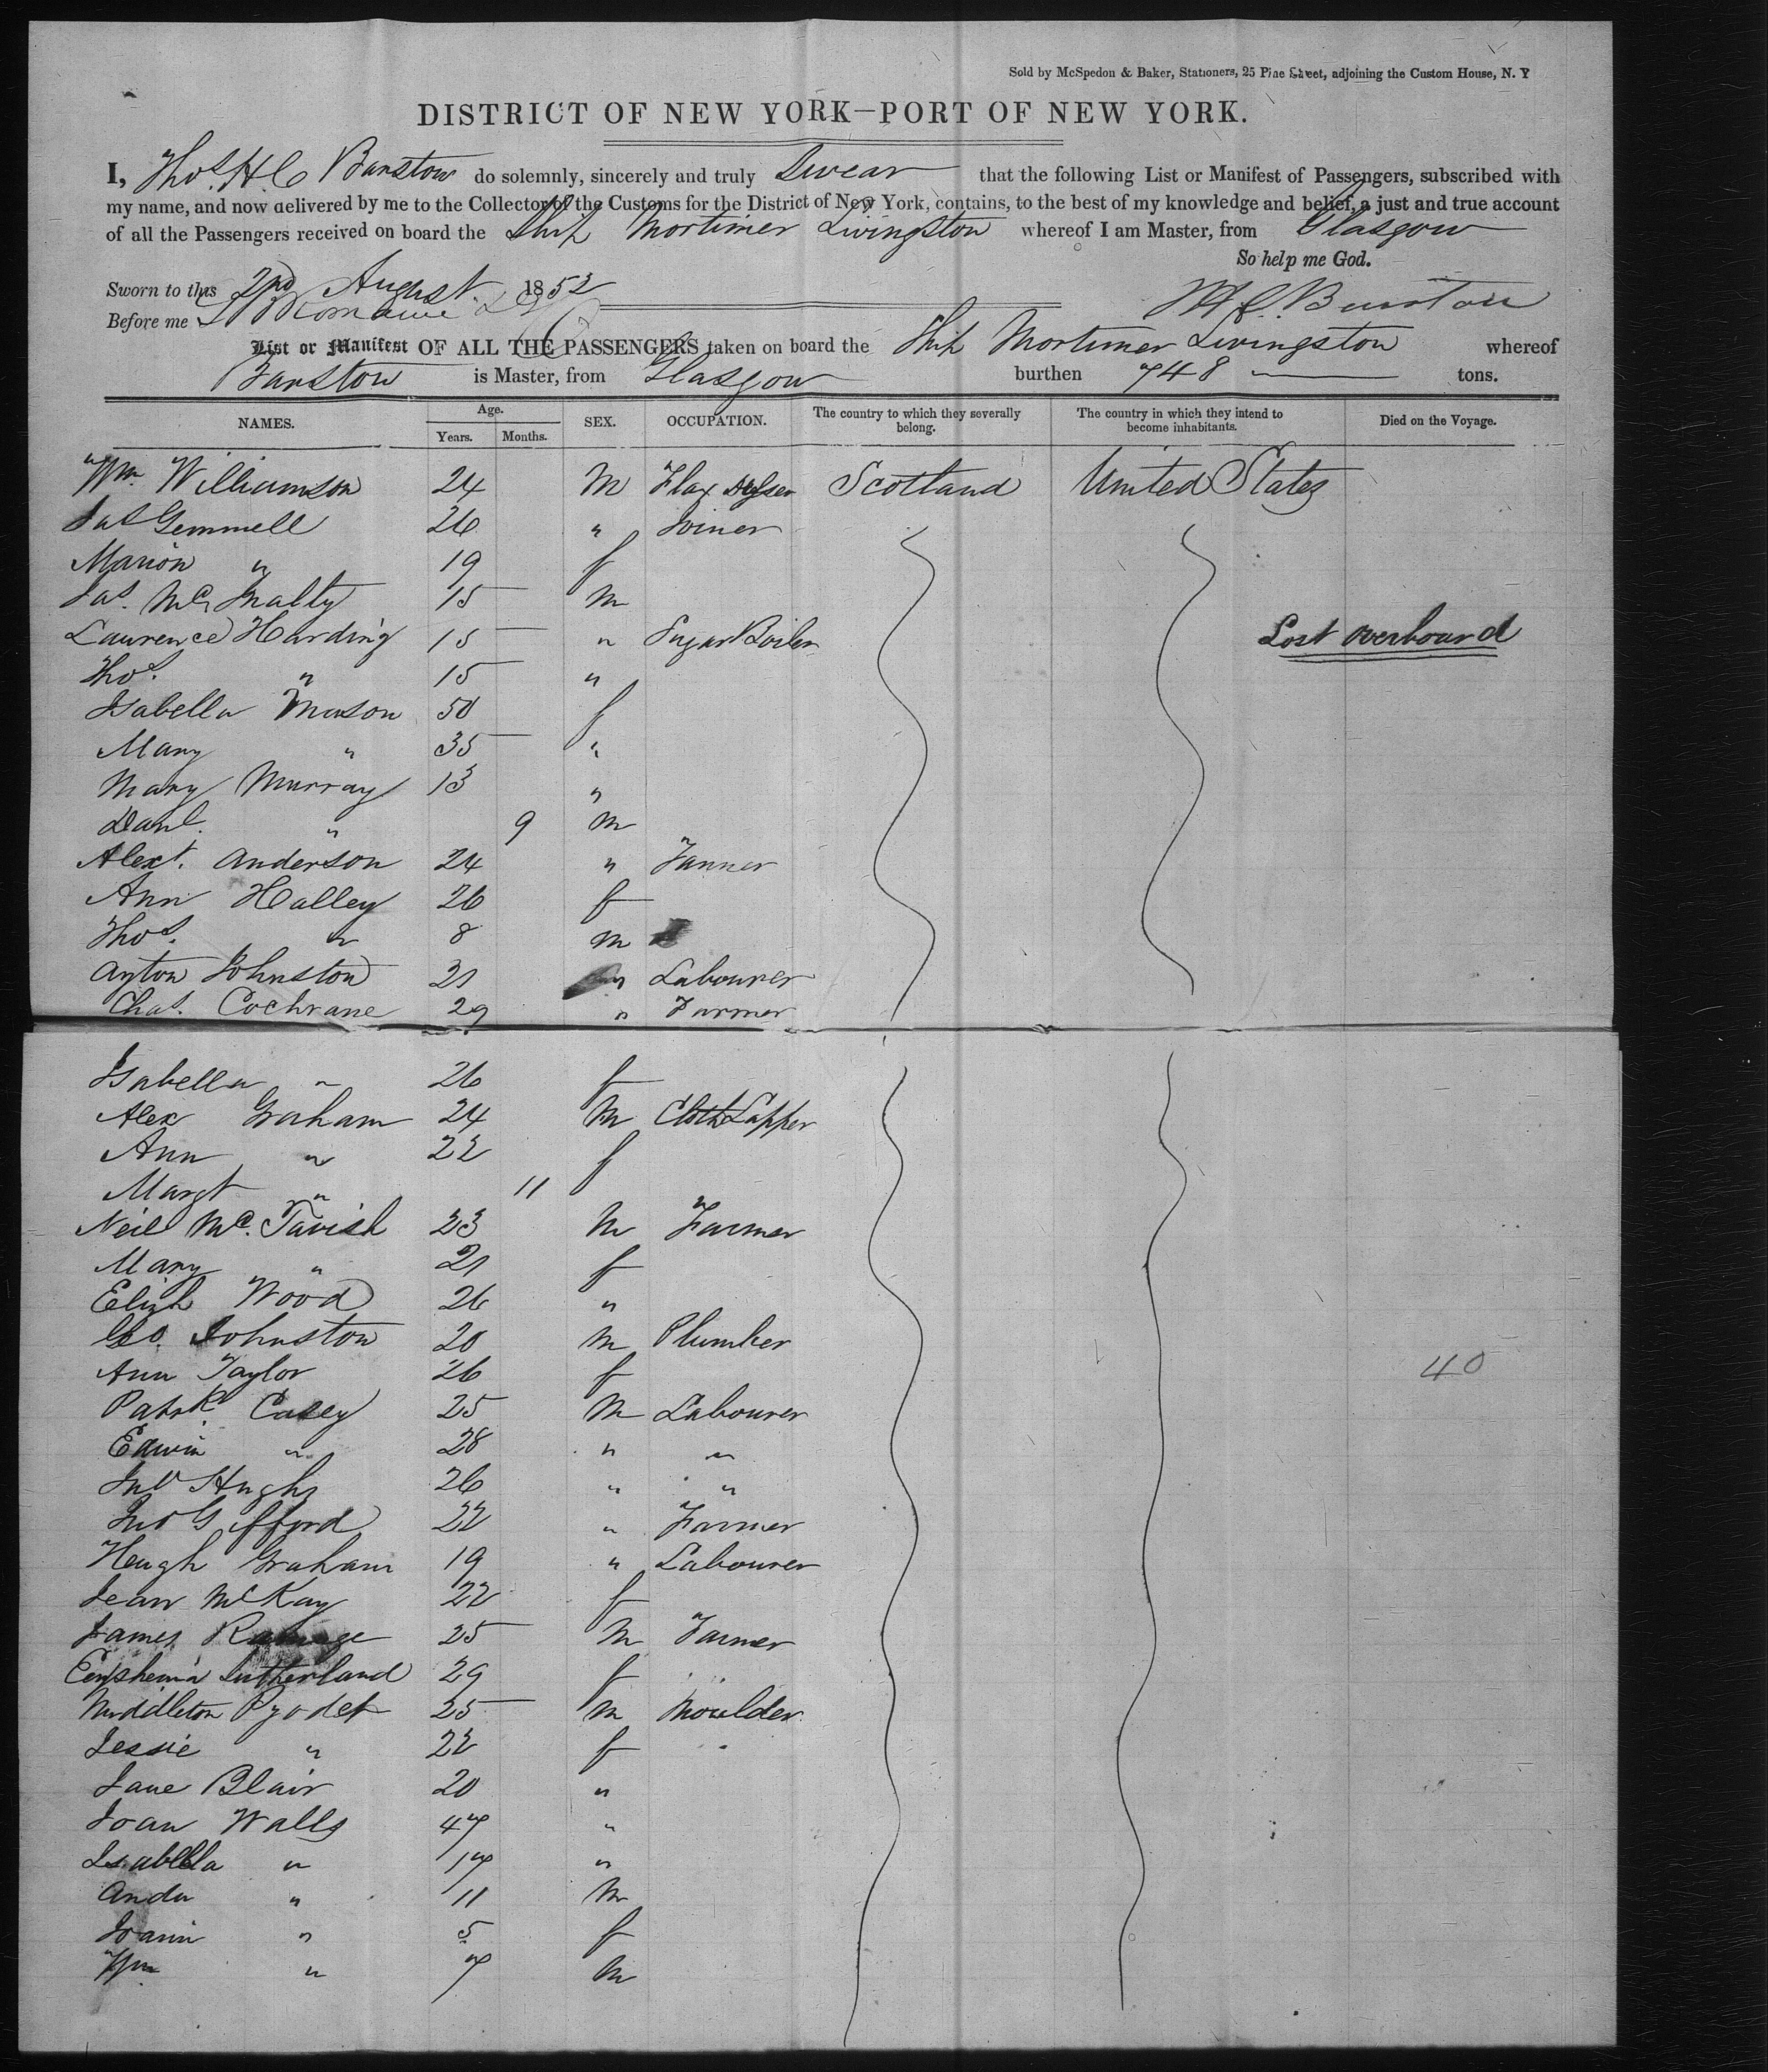 Sold by McSpedon & Baker, Stationers, 25 Pine Street, adjoining the Custom House, N. Y
DISTRICT OF NEW YORK—PORT OF NEW YORK.
I, Thos. H. C Barstow do solemnly, sincerely and truly Swear that the following List or Manifest of Passengers, subscribed with
my name, and now delivered by me to the Collector of the Customs for the District of New York, contains, to the best of my knowledge and belief, a just and true account
of all the Passengers received on board the Ship Mortimer Livingston whereof I am Master, from Glasgow
So help me God.
Sworn to this 2nd August 1852
Before me
List or Manifest OF ALL THE PASSENGERS taken on board the Ship Mortimer Livingston whereof
Barstow is Master, from Glasgow burthen 748 tons.
NAMES. Age. Years. Months. SEX. OCCUPATION. The country to which they severally belong. The country in which they intend to become inhabitants. Died on the Voyage.
Wm. Williamson 24 M Flax Scotland United States
Jas Gemmell 26 " Joiner
Marion " 19 f
Jas. Mc 15 m
Laurence Harding 15 " Sugar Boiler Lost overboard
Thos. " 15 "
Isabella Mason 50 f
Mary " 35 "
Mary Murray 13 "
Danl. " 9 m
Alext. Anderson 24 " Tanner
Ann Halley 26 f
Thos. " 8 m
Ayton Johnston 21 " Labourer
Chas. Cochrane 29 " Farmer
Isabella " 26 f
Alex Graham 24 m Cloth Lapper
Ann " 22 f
Margt " 11
Neil Mc. Tavish 23 m Farmer
Mary " 21 f
Elizh Wood 26 "
Geo. Johnston 20 m Plumber
Ann Taylor 26 f 40
Patrk. Casey 25 m Labourer
Edwin " 28 " "
Jno Hughs 26 " "
Jno Gifford 22 " Farmer
Heugh Graham 19 " Labourer
Jean McKay 22 f
James Ramage 25 m Farmer
Sutherland 29 f
Middleton 25 m Moulder
Jessie " 22 f
Jane Blair 20 "
Joan Walls 47 "
Isabella " 17 "
Andw " 11 m
" 5 f
Wm " 7 m